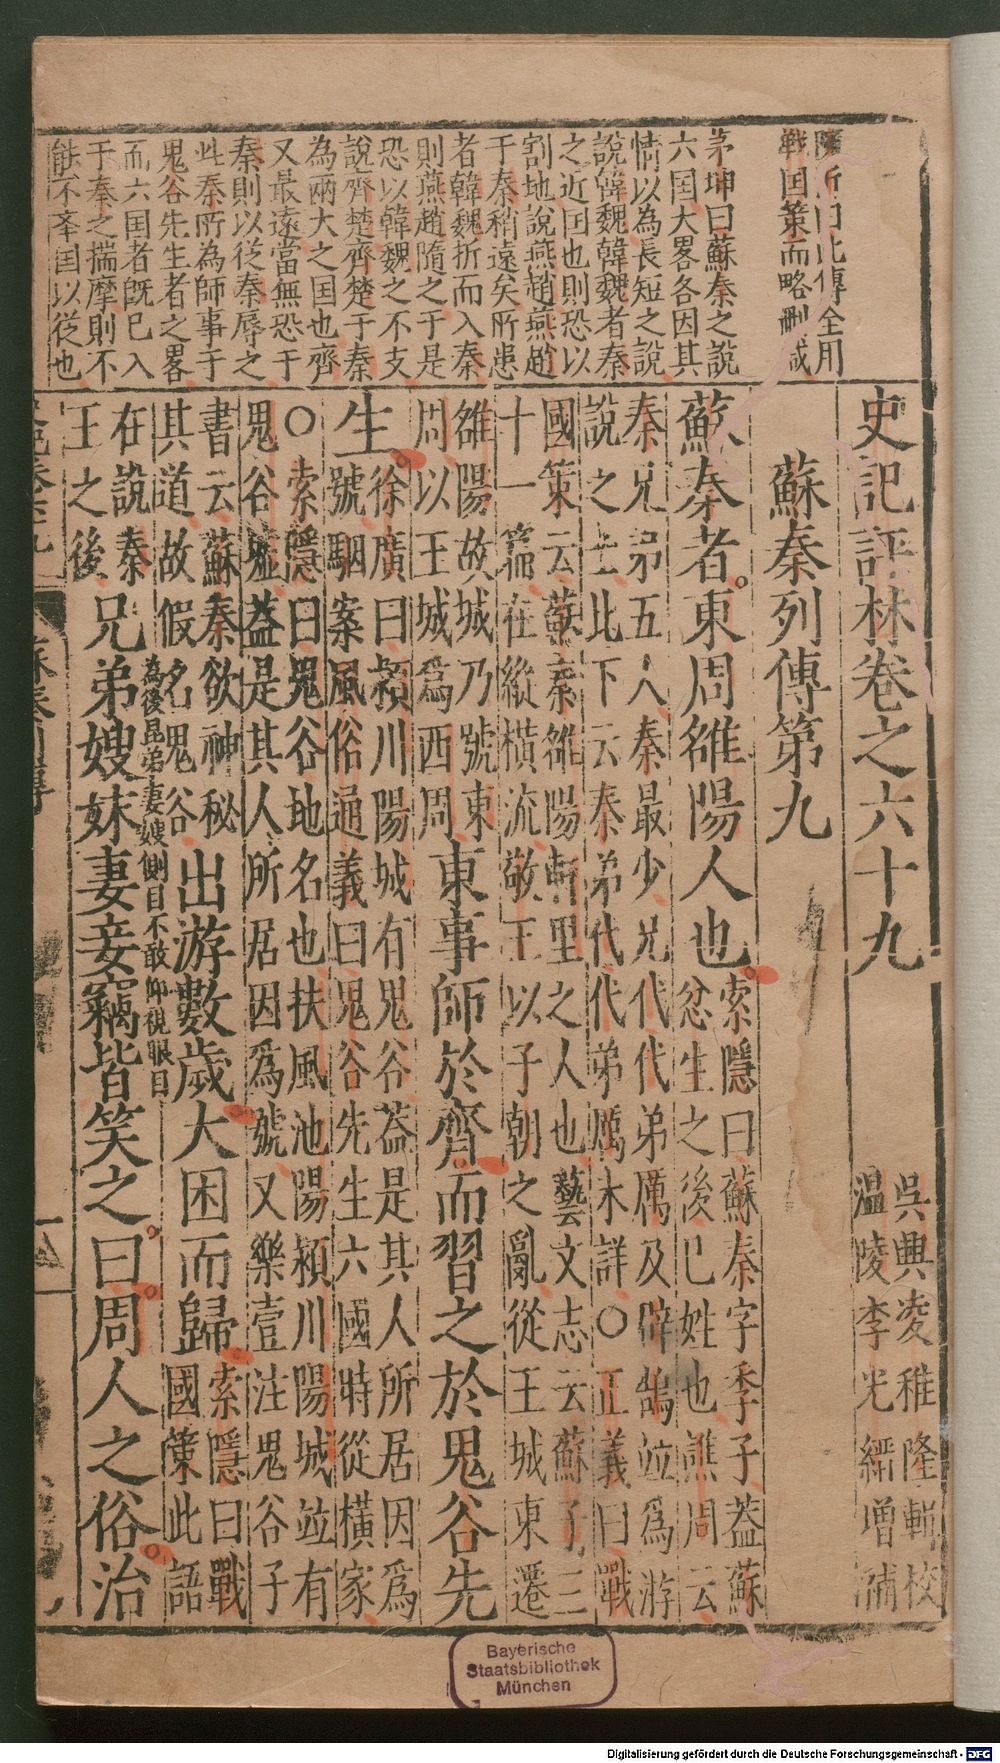 史記評林卷之六十九
吳興凌稚隆輯校
溫陵李光縉增補
蘇秦列傳第九
蘇秦者東周雒陽人也
索隱曰蘇秦字季子蓋蘇
忿生之後已姓也譙周云
秦兄弟五人秦最少兄代代弟厲及辟鵠竝爲游
說之士此下云秦弟代代弟厲未詳○正義曰戰
國策云蘇秦雒陽軒里之人也藝文志云蘇子三
十一篇在縱橫流敬王以子朝之亂從王城東遷
雒陽故城乃號東
周以王城爲西周
東事師於齊而習之於鬼谷先
生
徐廣曰潁川陽城有鬼谷葢是其人所居因爲
號駰案風俗通義曰鬼谷先生六國時從橫家
○索隱曰鬼谷地名也扶風池陽潁川陽城竝有
鬼谷墟葢是其人所居因爲號又樂壹注鬼谷子
書云蘇秦欲神秘
其道故假名鬼谷
出游數歲大困而歸
索隱曰戰
國策此語
在說秦
王之後
為後昆弟妻嫂側目不敢仰視眼目
兄弟嫂妹妻妾竊皆笑之曰周人之俗治
所曰此傳全用
戰国策而略刪減
茅坤曰蘇秦之說
六国大畧各因其
情以為長短之說
說韓魏韓魏者秦
之近国也則恐以
割地說燕趙燕趙
于秦稍遠矣所患
者韓魏折而入秦
則燕趙隨之于是
恐以韓魏之不支
說齊楚齊楚于秦
為兩大之国也齊
又最遠當無恐于
秦則以從秦辱之
此秦所為師事于
鬼谷先生者之畧
而六国者旣已入
于秦之揣摩則不
不夲国以從也
Bayerische
Staatsbibliothek
München
Digitalisierung gefördert durch die Deutsche Forschungsgemeinschaft - DFG